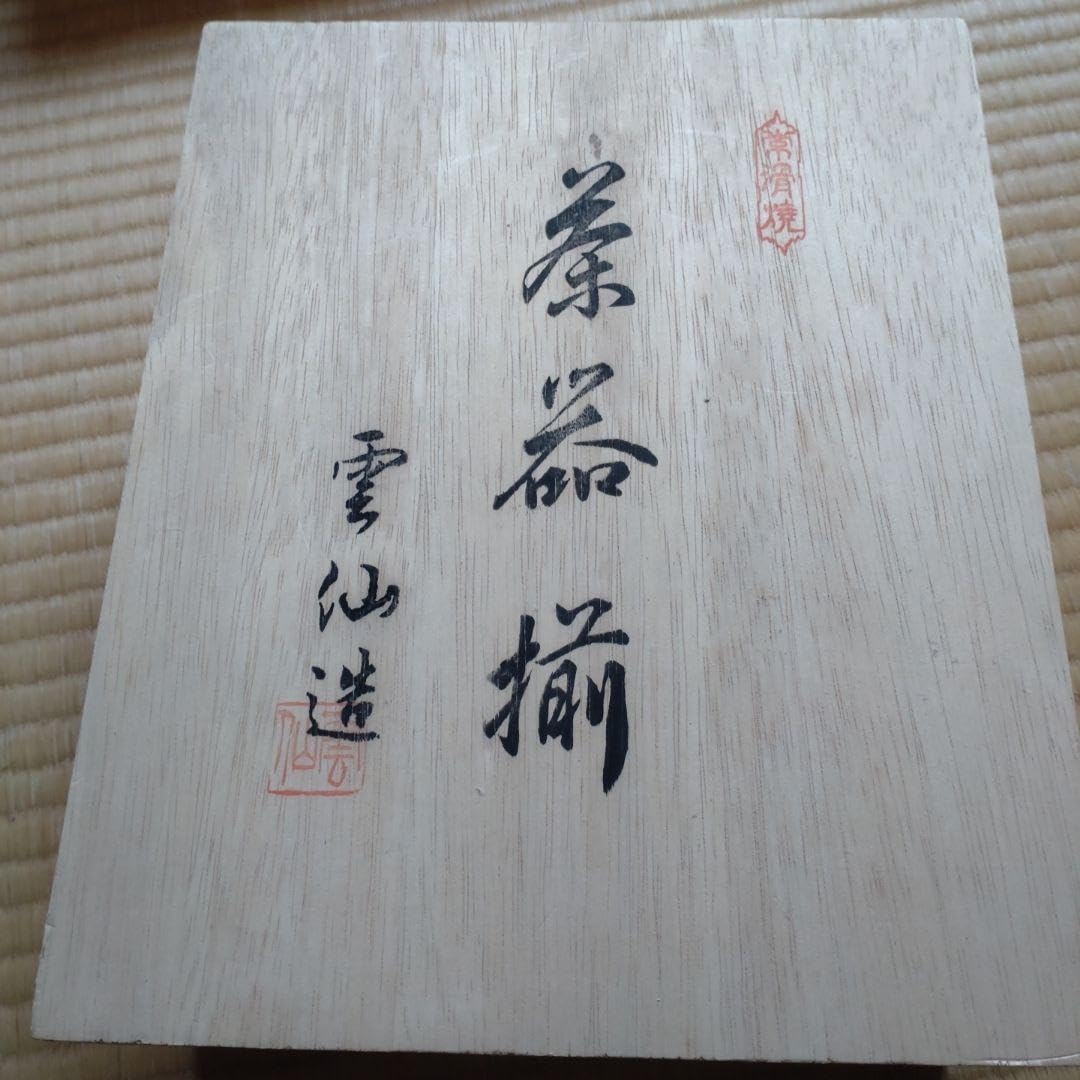 常滑焼
茶器揃
雲仙造
雲仙